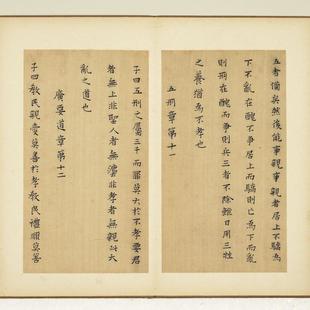 五者備矣然後能事親事親者居上不驕為
下不亂在醜不爭居上而驕則亡為下而亂
則刑在醜而爭則兵三者不除雖日用三牲
之養猶為不孝也
五刑章第十一
子曰五刑之屬三千而罪莫大於不孝要君
者無上非聖人者無灋非孝者無親此大
亂之道也
廣要道章第十二
子曰教民親愛莫善於孝教民禮順莫善